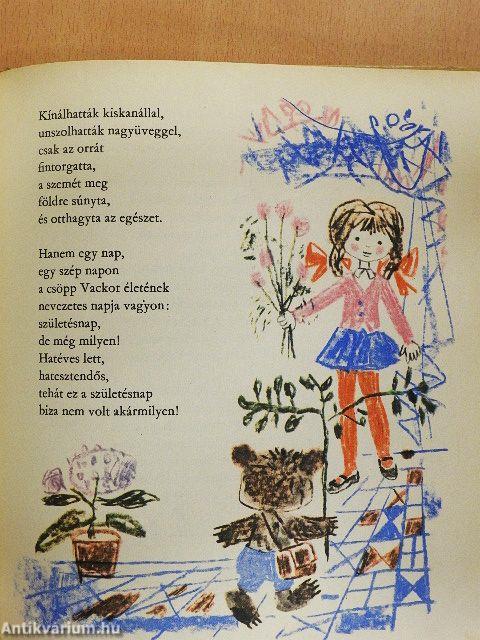 Kínálhatták kiskanállal,
unszolhatták nagyüveggel,
csak az orrát
fintorgatta,
a szemét meg
földre súnyta,
és otthagyta az egészet.
Hanem egy nap,
egy szép napon
a csöpp Vackor életének
nevezetes napja vagyon:
születésnap,
de még milyen!
Hatéves lett,
hatesztendős,
tehát ez a születésnap
biza nem volt akármilyen!
Antikvarium.hu